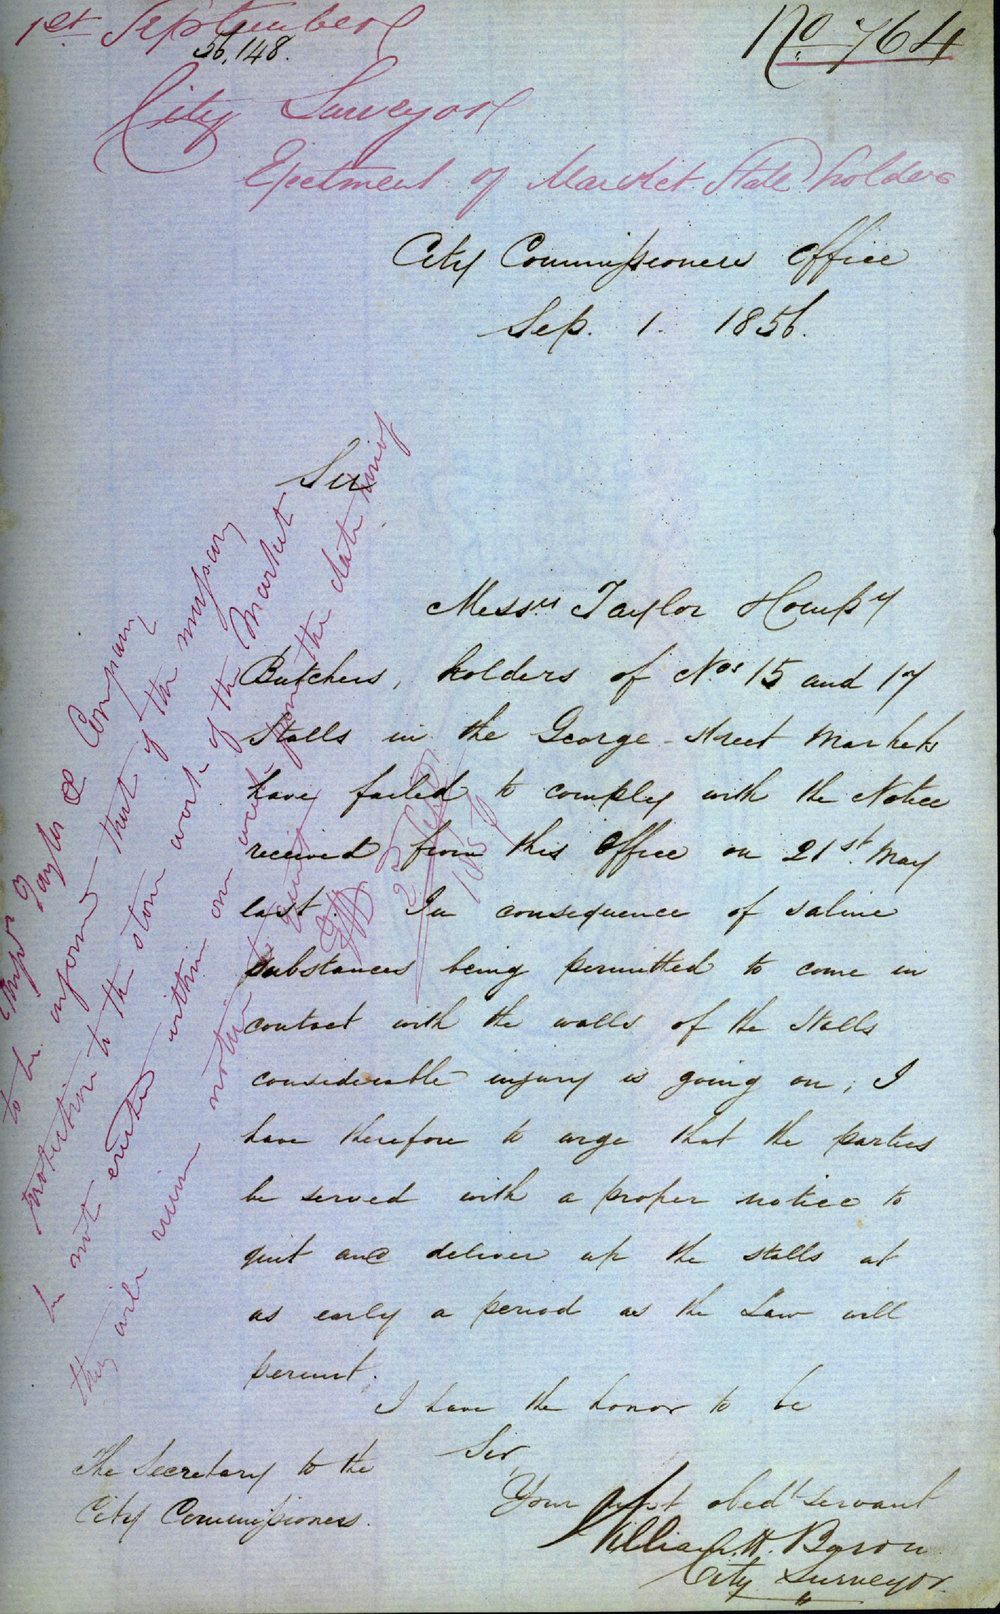 1st September
56,148.
No 764
City Surveyor
Ejectment of Market Stall holders
City Commissioners Office
Sep. 1. 1856.
Sir
Messrs Taylor
Butchers, holders of Nos 15 and 17
Stalls in the George Street Markets
have failed to comply with the Notice
received from this Office on 21st May
last. In consequence of saline
substances being permitted to come in
contact with the walls of the Stalls
considerable injury is going on; I
have therefore to urge that the parties
be served with a proper notice to
quit and deliver up the stalls at
as early a period as the Law will
permit.
I have the honor to be
Sir
Your most obedt servant
William. H. Byron
City Surveyor.
The Secretary to the
City Commissioners.
Messrs Taylor & Company
to be informed that if the necessary
protection to the stone work of the Market
be not erected within one week from the date hereof
they will receive notice to quit
2 Sept
1856